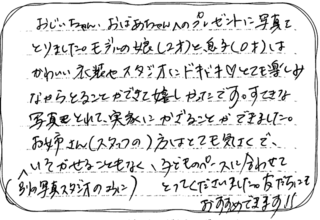 おじいちゃん、おばあちゃんへのプレゼントに写真を
とりました。モデルの娘(2才)と息子(0才)は
かわいい衣装やスタジオにドキドキ♡とても楽しみ
ながらとることができて嬉しかったです。すてきな
写真もとれて、実家にかざることができました。
お姉さん(スタッフの)方はとても気さくで、
いそがせることもなく、子どものペースに合わせて
(別の写真スタジオのように)
とってくださいました。友だちにも
おすすめできます!!